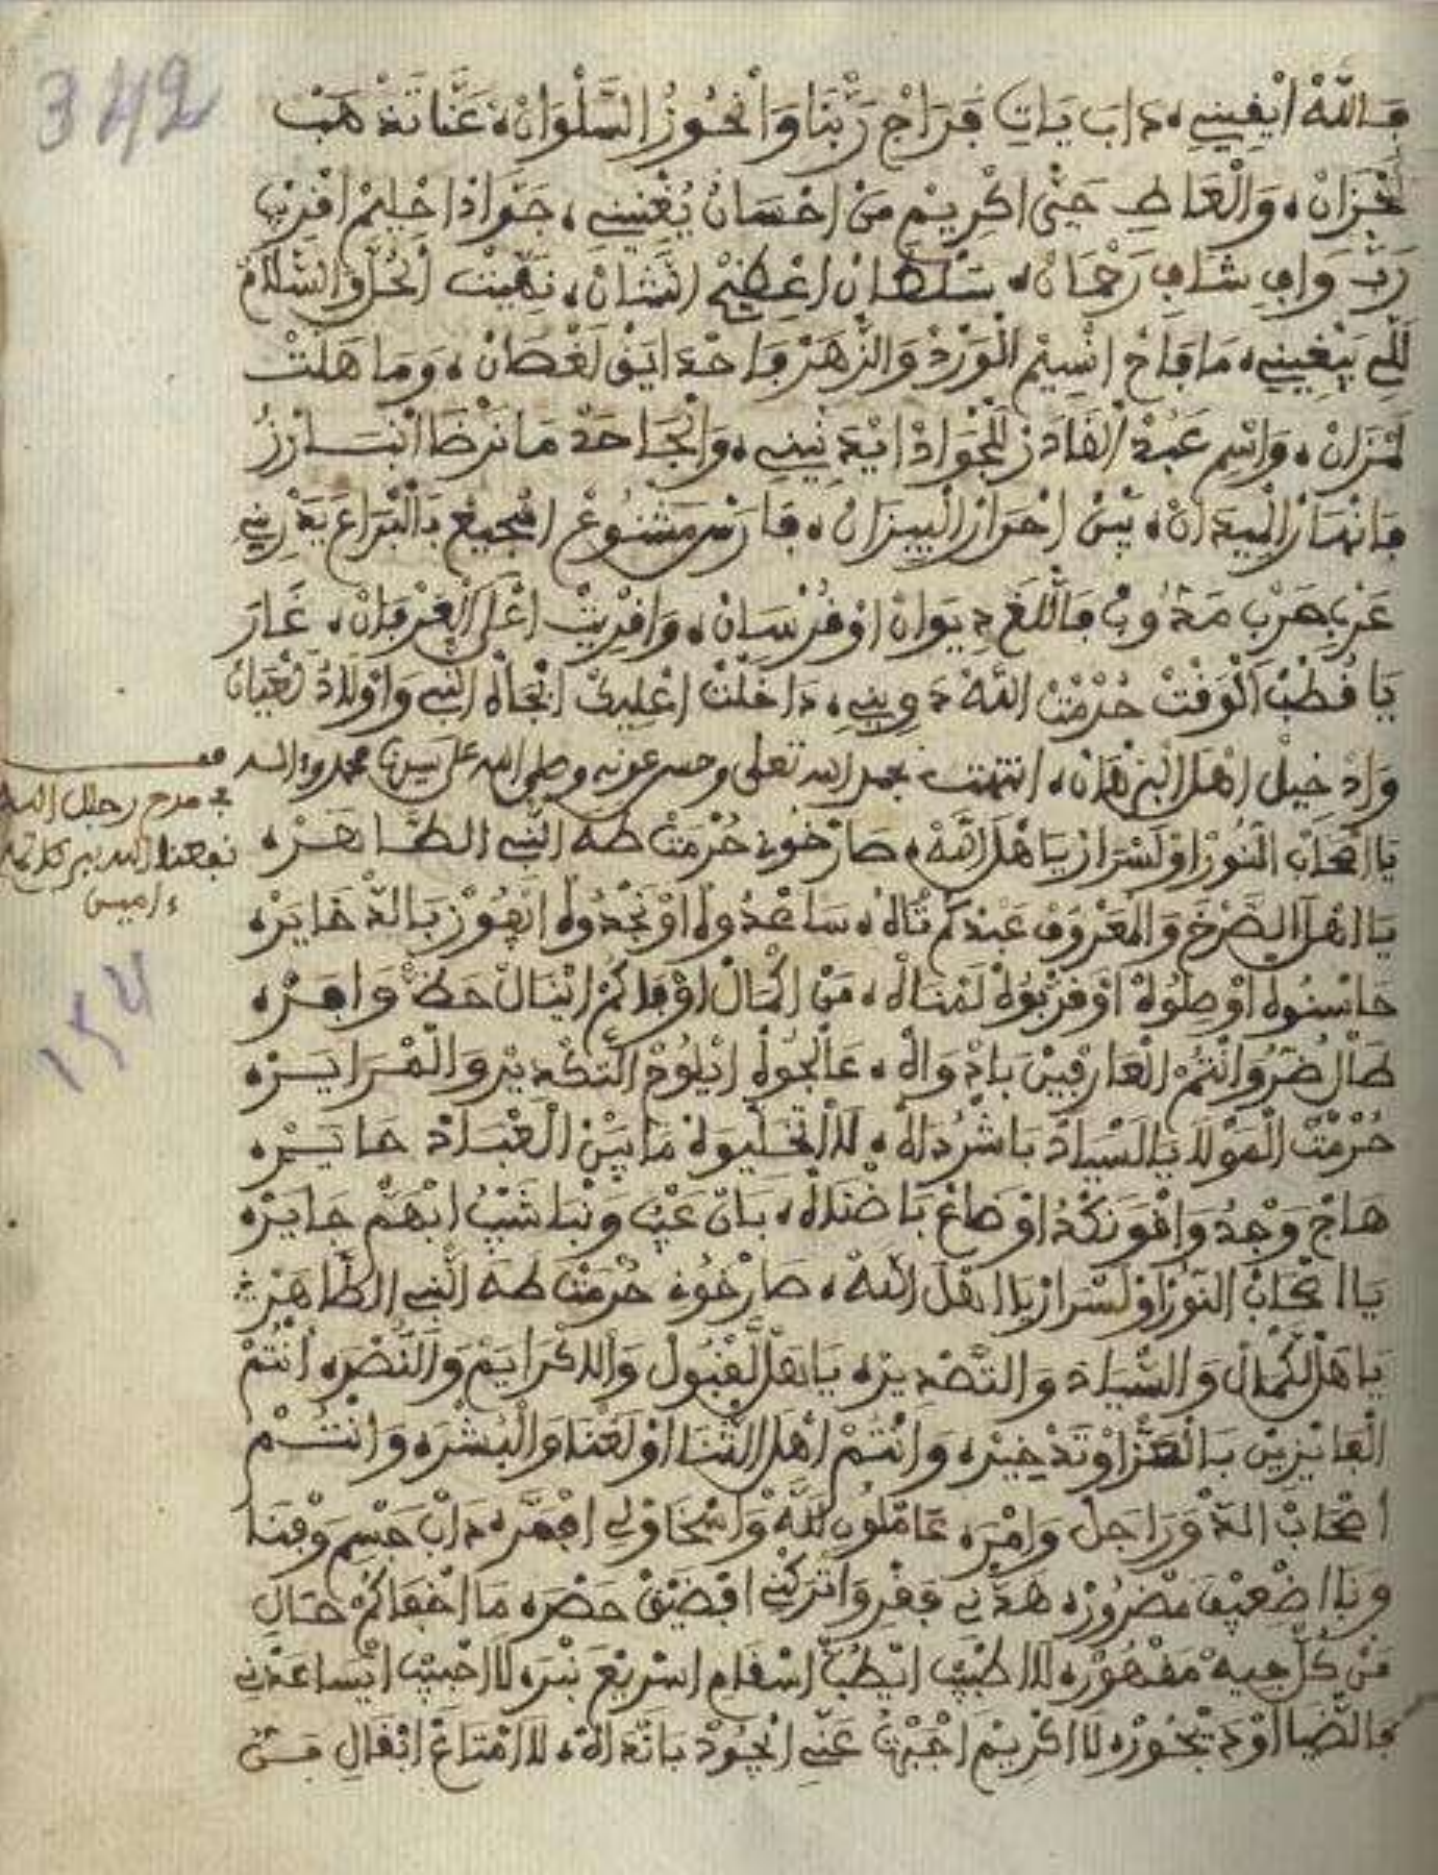 342
فالله ايفيني، داب يات فراج ربنا وانحوز السلوان، عنا تذهب
لحزان، والعاطي حتى اكريم من احسان يغنيني، جواد احليم اقريب
رب وافي شافي رحمان، سلطان اعظيم الشان، نهيت الحل والسلام
للي يبغيني، ما فاح انسيم الورد والزهر فاحدايق لغصان، وما هلت
لمزان، واسم عبد القادر للجواد ايدنيني، والجاحد ما نرضا انبارز
فانهار الميدان، بين احرار الييزان، فارس مشنوع افجيع بالبراع
عرب هرب مذوب فاللغ ديوان اوفرسان، وافريت اعلى العرفان، غار
يا قطب الوقت حرمت الله دويني، داخلت اعليك ابجاه النبي واولاد
وادخيل اهل البرهان، انتهت بحمد الله تعلى وحسن عونه وصلى الله على سيدنا محمد وءاله
في مدح رجال الله
نفعنا الله ببركاتهم
ءامين
يا اصحاب النور اولسرار يا هل الله، صارخوني حرمت طه النبي الطاهره
يا اهل الصرخ والمعروف عبدكم تاه، ساعدوه اونجدوه ايفوز بالذخايره
حاسنوه اوصلوه اوقربوه لمناه، من اكمال اوفاكم اينال حظ وافره
طال ضر وانتم العارفين بادواه، عالجوه ايلوح التكدير والمرايره
حرمت المولا يا السياد باش رداه، لا اتخليوه ما بين العباد حايره
هاج وجد وافو نكد اوضاع باضناه، بان عيب ونبا شيب ابهم جايره
يا اصحاب النور اولسرار يا اهل الله، صارخوني حرمت طه النبي الطاهره
يا هل لكمال والسياد والتصديره يا هل لقبول والاكرايم والنصره انتم
الفايزين بالعز اوتدخيره وانتم اهل الثنا اولغنا والبشره وانتم
اصحاب الدور اجل وامره عاملون لله واسخاو لي ابهمه داب جسم وفنا
ونا اضعيف مضروره هدني فقر واتركني افضيق حضره ما اخفاكم حال
من كل جيه مقهوره لا اطبيب ايطب اسقام اسريع نبره لا احبيب ايساعدني
فالضيا اودبجوره لا اكريم اجبرت عني ايجود باتداه، لا امتاع انقال من
154